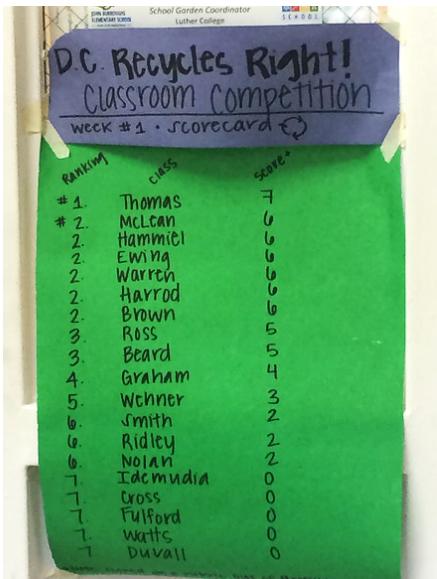 School Garden Coordinator
JOHN BURROUGHS
ELEMENTARY SCHOOL
Luther College
SCHOOL
D.C. Recycles Right!
Classroom Competition
week #1 · scorecard
Ranking class score*
#1. Thomas 7
#2. McLean 6
2. Hammiel 6
2. Ewing 6
2. Warren 6
2. Harrod 6
2. Brown 6
3. Ross 5
3. Beard 5
4. Graham 4
5. Wehner 3
6. Smith 2
6. Ridley 2
6. Nolan 2
7. Idemudia 0
7. Cross 0
7. Fulford 0
7. Watts 0
7 Duvall 0